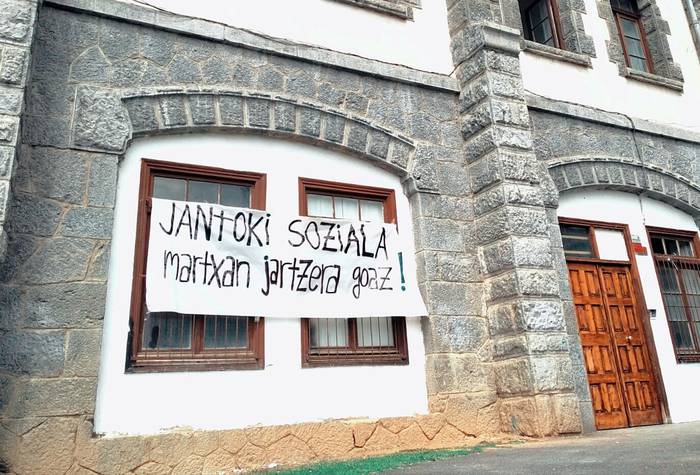 JANTOKI SOZIALA
martxan jartzera goaz!